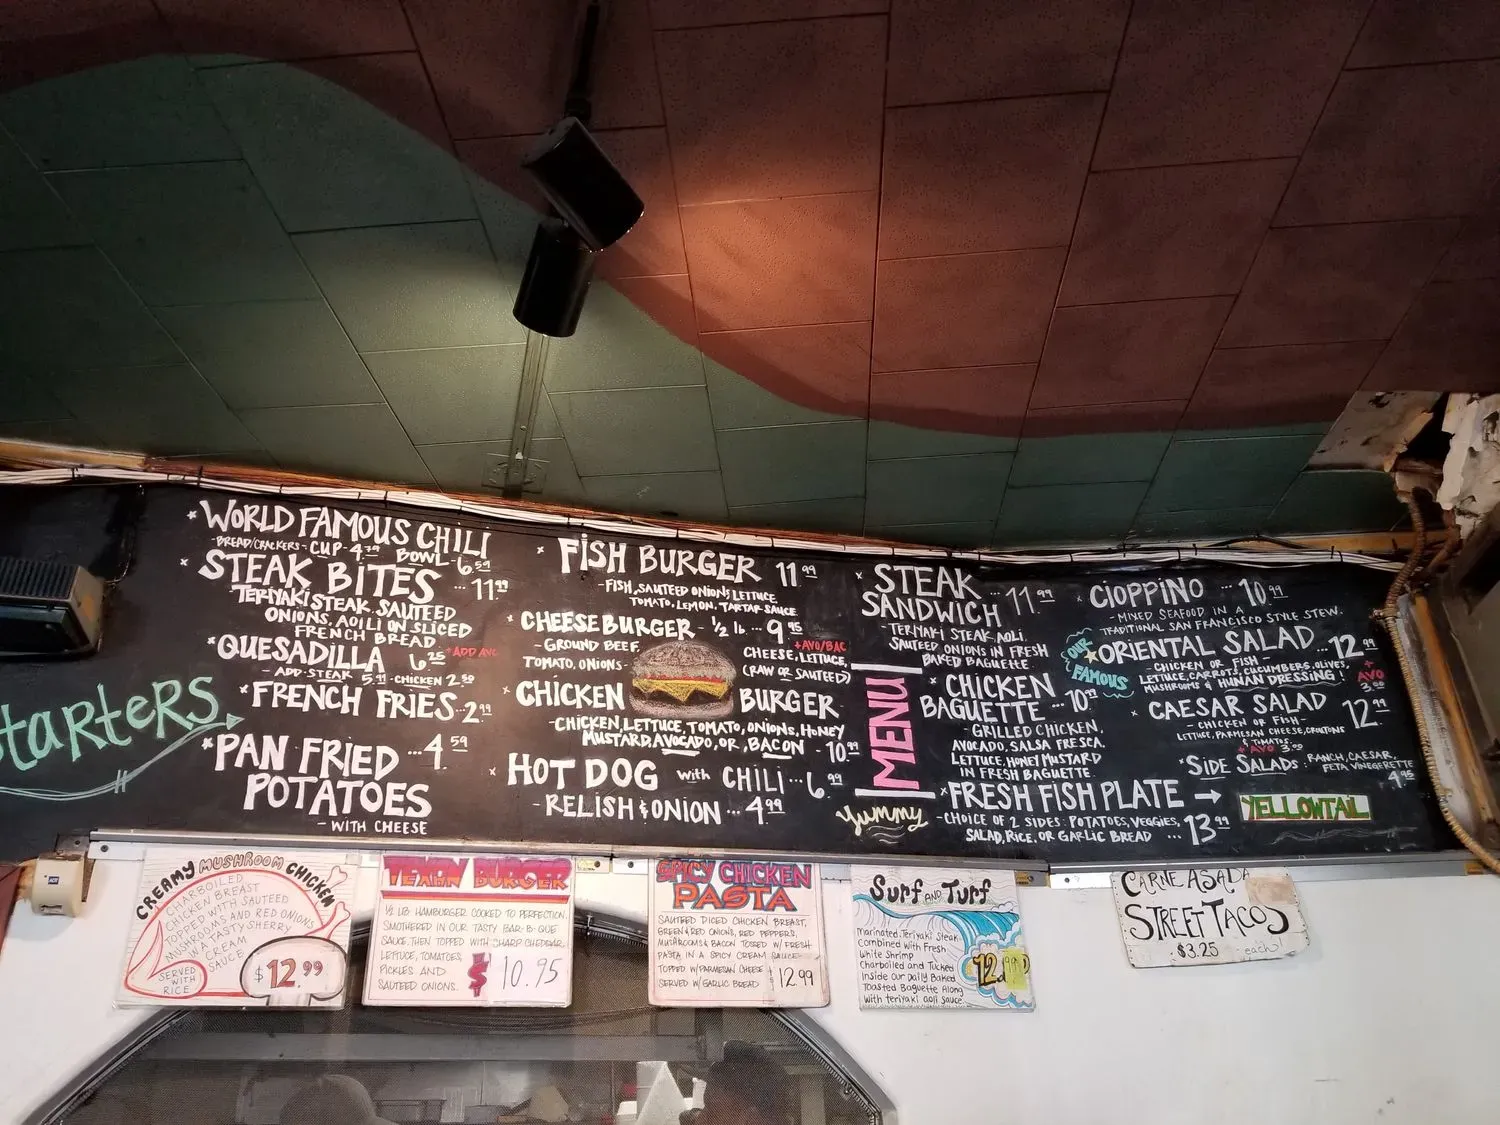 STARTERS
*WORLD FAMOUS CHILI
-BREAD/CRACKERS- CUP-4.79 BOWL-6.59
*STEAK BITES ...11.99
TERIYAKI STEAK, SAUTEED
ONIONS, AOILI ON SLICED
FRENCH BREAD
*QUESADILLA 6.25 +ADD AVO
-ADD-STEAK 5.99 -CHICKEN 2.50
*FRENCH FRIES-2.99
*PAN FRIED ...4.59
POTATOES
-WITH CHEESE
* FISH BURGER 11.99
-FISH, SAUTEED ONIONS, LETTUCE
TOMATO, LEMON, TARTAR SAUCE
*CHEESEBURGER - 1/2 lb...9.95
-GROUND BEEF,
TOMATO, ONIONS-
+AVO/BAC
CHEESE, LETTUCE,
(RAW OR SAUTEED)
*CHICKEN BURGER-
-CHICKEN, LETTUCE, TOMATO, ONIONS, HONEY
MUSTARD, AVOCADO, OR, BACON - 10.99
*HOT DOG with CHILI...6.99
-RELISH & ONION ...4.99
MENU
Yummy
* STEAK
SANDWICH ...11.99
-TERIYAKI STEAK, AOLI.
SAUTEED ONIONS IN FRESH
BAKED BAGUETTE.
*CHICKEN
BAGUETTE...10.99
-GRILLED CHICKEN,
AVOCADO, SALSA FRESCA,
LETTUCE, HONEY MUSTARD
IN FRESH BAGUETTE.
*FRESH FISH PLATE → YELLOWTAIL
-CHOICE OF 2 SIDES: POTATOES, VEGGIES,
SALAD, RICE, OR GARLIC BREAD ...13.99
* CIOPPINO ...10.99
-MIXED SEAFOOD IN A
TRADITIONAL SAN FRANCISCO STYLE STEW.
OUR FAMOUS
ORIENTAL SALAD...12.99
-CHICKEN OR FISH-
LETTUCE, CARROTS, CUCUMBERS, OLIVES,
MUSHROOMS & HUNAN DRESSING!
+
AVO
3.00
* CAESAR SALAD 12.99
-CHICKEN OR FISH-
LETTUCE, PARMESAN CHEESE, CROUTONS
& TOMATOS
+ AVO 3.00
*SIDE SALADS - RANCH, CAESAR,
FETA VINEGERETTE
4.95
CREAMY MUSHROOM CHICKEN
CHARBOILED
CHICKEN BREAST
TOPPED WITH SAUTEED
MUSHROOMS AND RED ONIONS
IN A TASTY SHERRY
CREAM
SAUCE
SERVED
WITH
RICE
$12.99
TEXAN BURGER
1/2 LB HAMBURGER COOKED TO PERFECTION.
SMOTHERED IN OUR TASTY BAR-B-QUE
SAUCE. THEN TOPPED WITH SHARP CHEDDAR,
LETTUCE, TOMATOES,
PICKLES AND
SAUTEED ONIONS.
$ 10.95
SPICY CHICKEN
PASTA
SAUTEED DICED CHICKEN BREAST,
GREEN & RED ONIONS, RED PEPPERS,
MUSHROOMS & BACON TOSSED W/ FRESH
PASTA IN A SPICY CREAM SAUCE
TOPPED W/ PARMESAN CHEESE
SERVED W/ GARLIC BREAD
12.99
Surf AND Turf
Marinated Teriyaki Steak
Combined with Fresh
White Shrimp
Charboiled and Tucked
inside our daily Baked
Toasted Baguette Along
with teriyaki aoli sauce
12.99
CARNE ASADA
STREET TACOS
$3.25 each
ADT